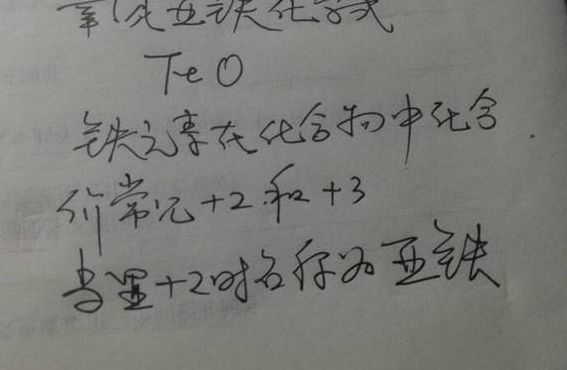 氧化亚铁化学式
FeO
铁元素在化合物中化合
价常见+2和+3
当显+2时名称为亚铁